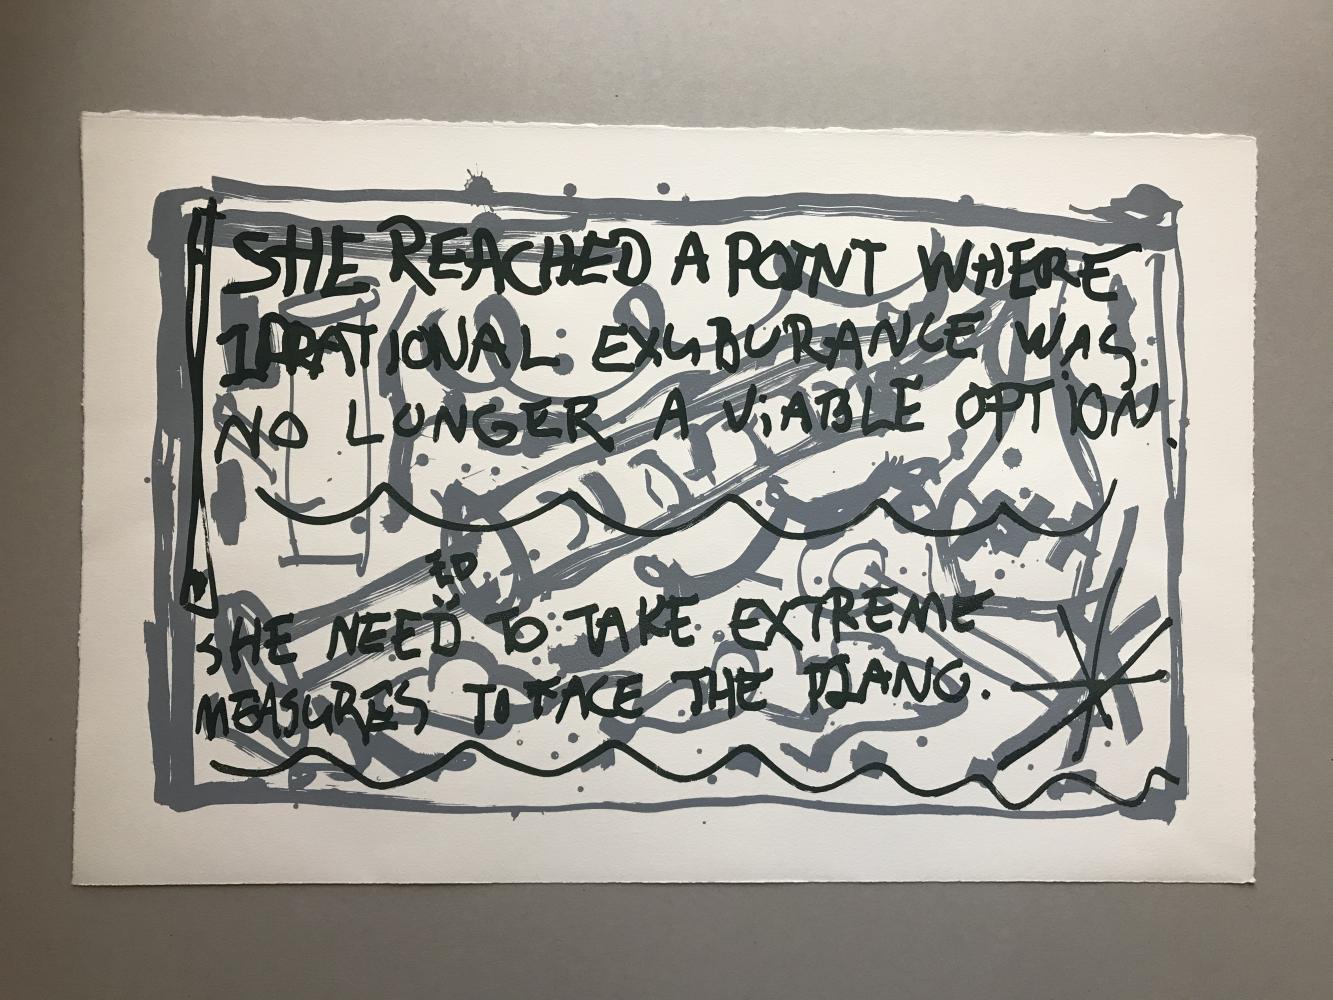 SHE REACHED A POINT WHERE
IRRATIONAL EXUBURANCE WAS
NO LONGER A ViABLE OPTION.
ED
SHE NEED TO TAKE EXTREME
MEASURES TO FACE THE PIANO.